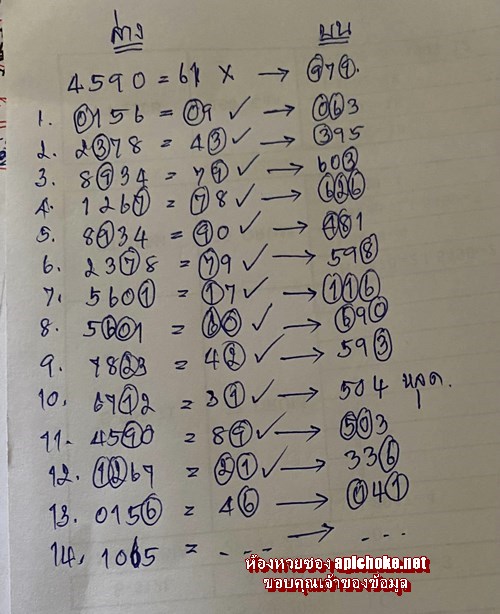 ล่าง บน
4590 = 61 x → 979.
1. 0156 = 09 ✓ → 063
2. 2378 = 43 ✓ → 395
3. 8934 = 79 ✓ → 603
4. 1267 = 78 ✓ → 626
5. 8934 = 90 ✓ → 481
6. 2378 = 79 ✓ → 598
7. 5601 = 17 ✓ → 116
8. 5601 = 60 ✓ → 690
9. 7823 = 42 ✓ → 593
10. 6712 = 31 ✓ → 504 หลุด.
11. 4590 = 89 ✓ → 503
12. 1267 = 21 ✓ → 336
13. 0156 = 46 → 041
14. 1065 = - - - → - - -
ห้องหวยซอง aplchoke.net
ขอบคุณเจ้าของข้อมูล